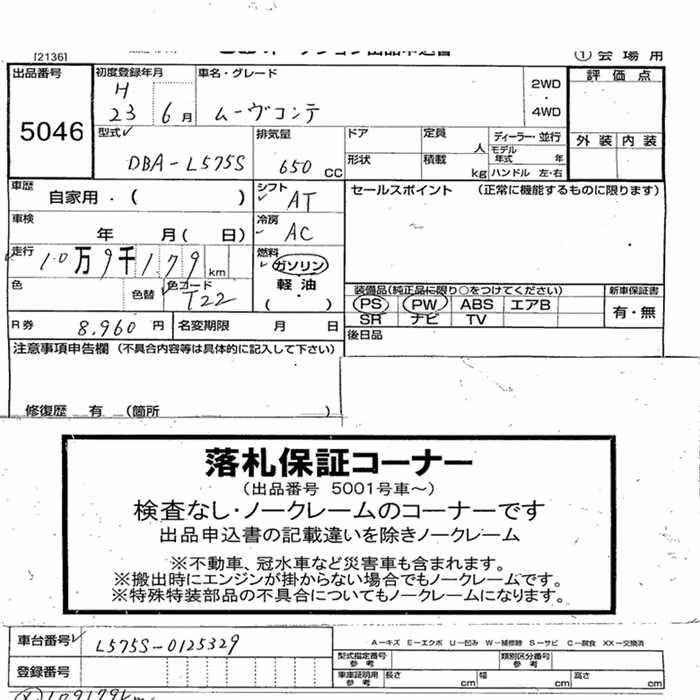 [2136]
① 会 場 用
出品番号
5046
初度登録年月
H
23 6 月
車名・グレード
ムーヴコンテ
2WD
・
4WD
評 価 点
外 装 内 装
型式
DBA-L575S
排気量
650 CC
ドア
形状
定員
人
積載
kg
ディーラー・並行
モデル年式 年
ハンドル 左・右
車歴
自家用・( )
シフト
AT
セールスポイント (正常に機能するものに限ります)
車検
年 月( 日)
冷房
AC
走行
10万9千179 km
燃料
ガソリン
軽 油
( )
色
色替
色コード
T22
装備品(純正品に限り○をつけてください)
PS PW ABS エアB
SR ナビ TV
新車保証書
有・無
R券 8.960 円
名変期限 月 日
後日品
注意事項申告欄 (不具合内容等は具体的に記入して下さい)
修復歴 有 (箇所 )
落札保証コーナー
(出品番号 5001号車~)
検査なし・ノークレームのコーナーです
出品申込書の記載違いを除きノークレーム
※不動車、冠水車など災害車も含まれます。
※搬出時にエンジンが掛からない場合でもノークレームです。
※特殊特装部品の不具合についてもノークレームになります。
車台番号
L575S-0125329
A-キズ E-エクボ U-凹み W-補修跡 S-サビ C-腐食 XX-交換済
型式指定番号
参 考
類別区分番号
参 考
登録番号
車庫証明用
参 考
長さ cm
幅 cm
高さ cm
109179km